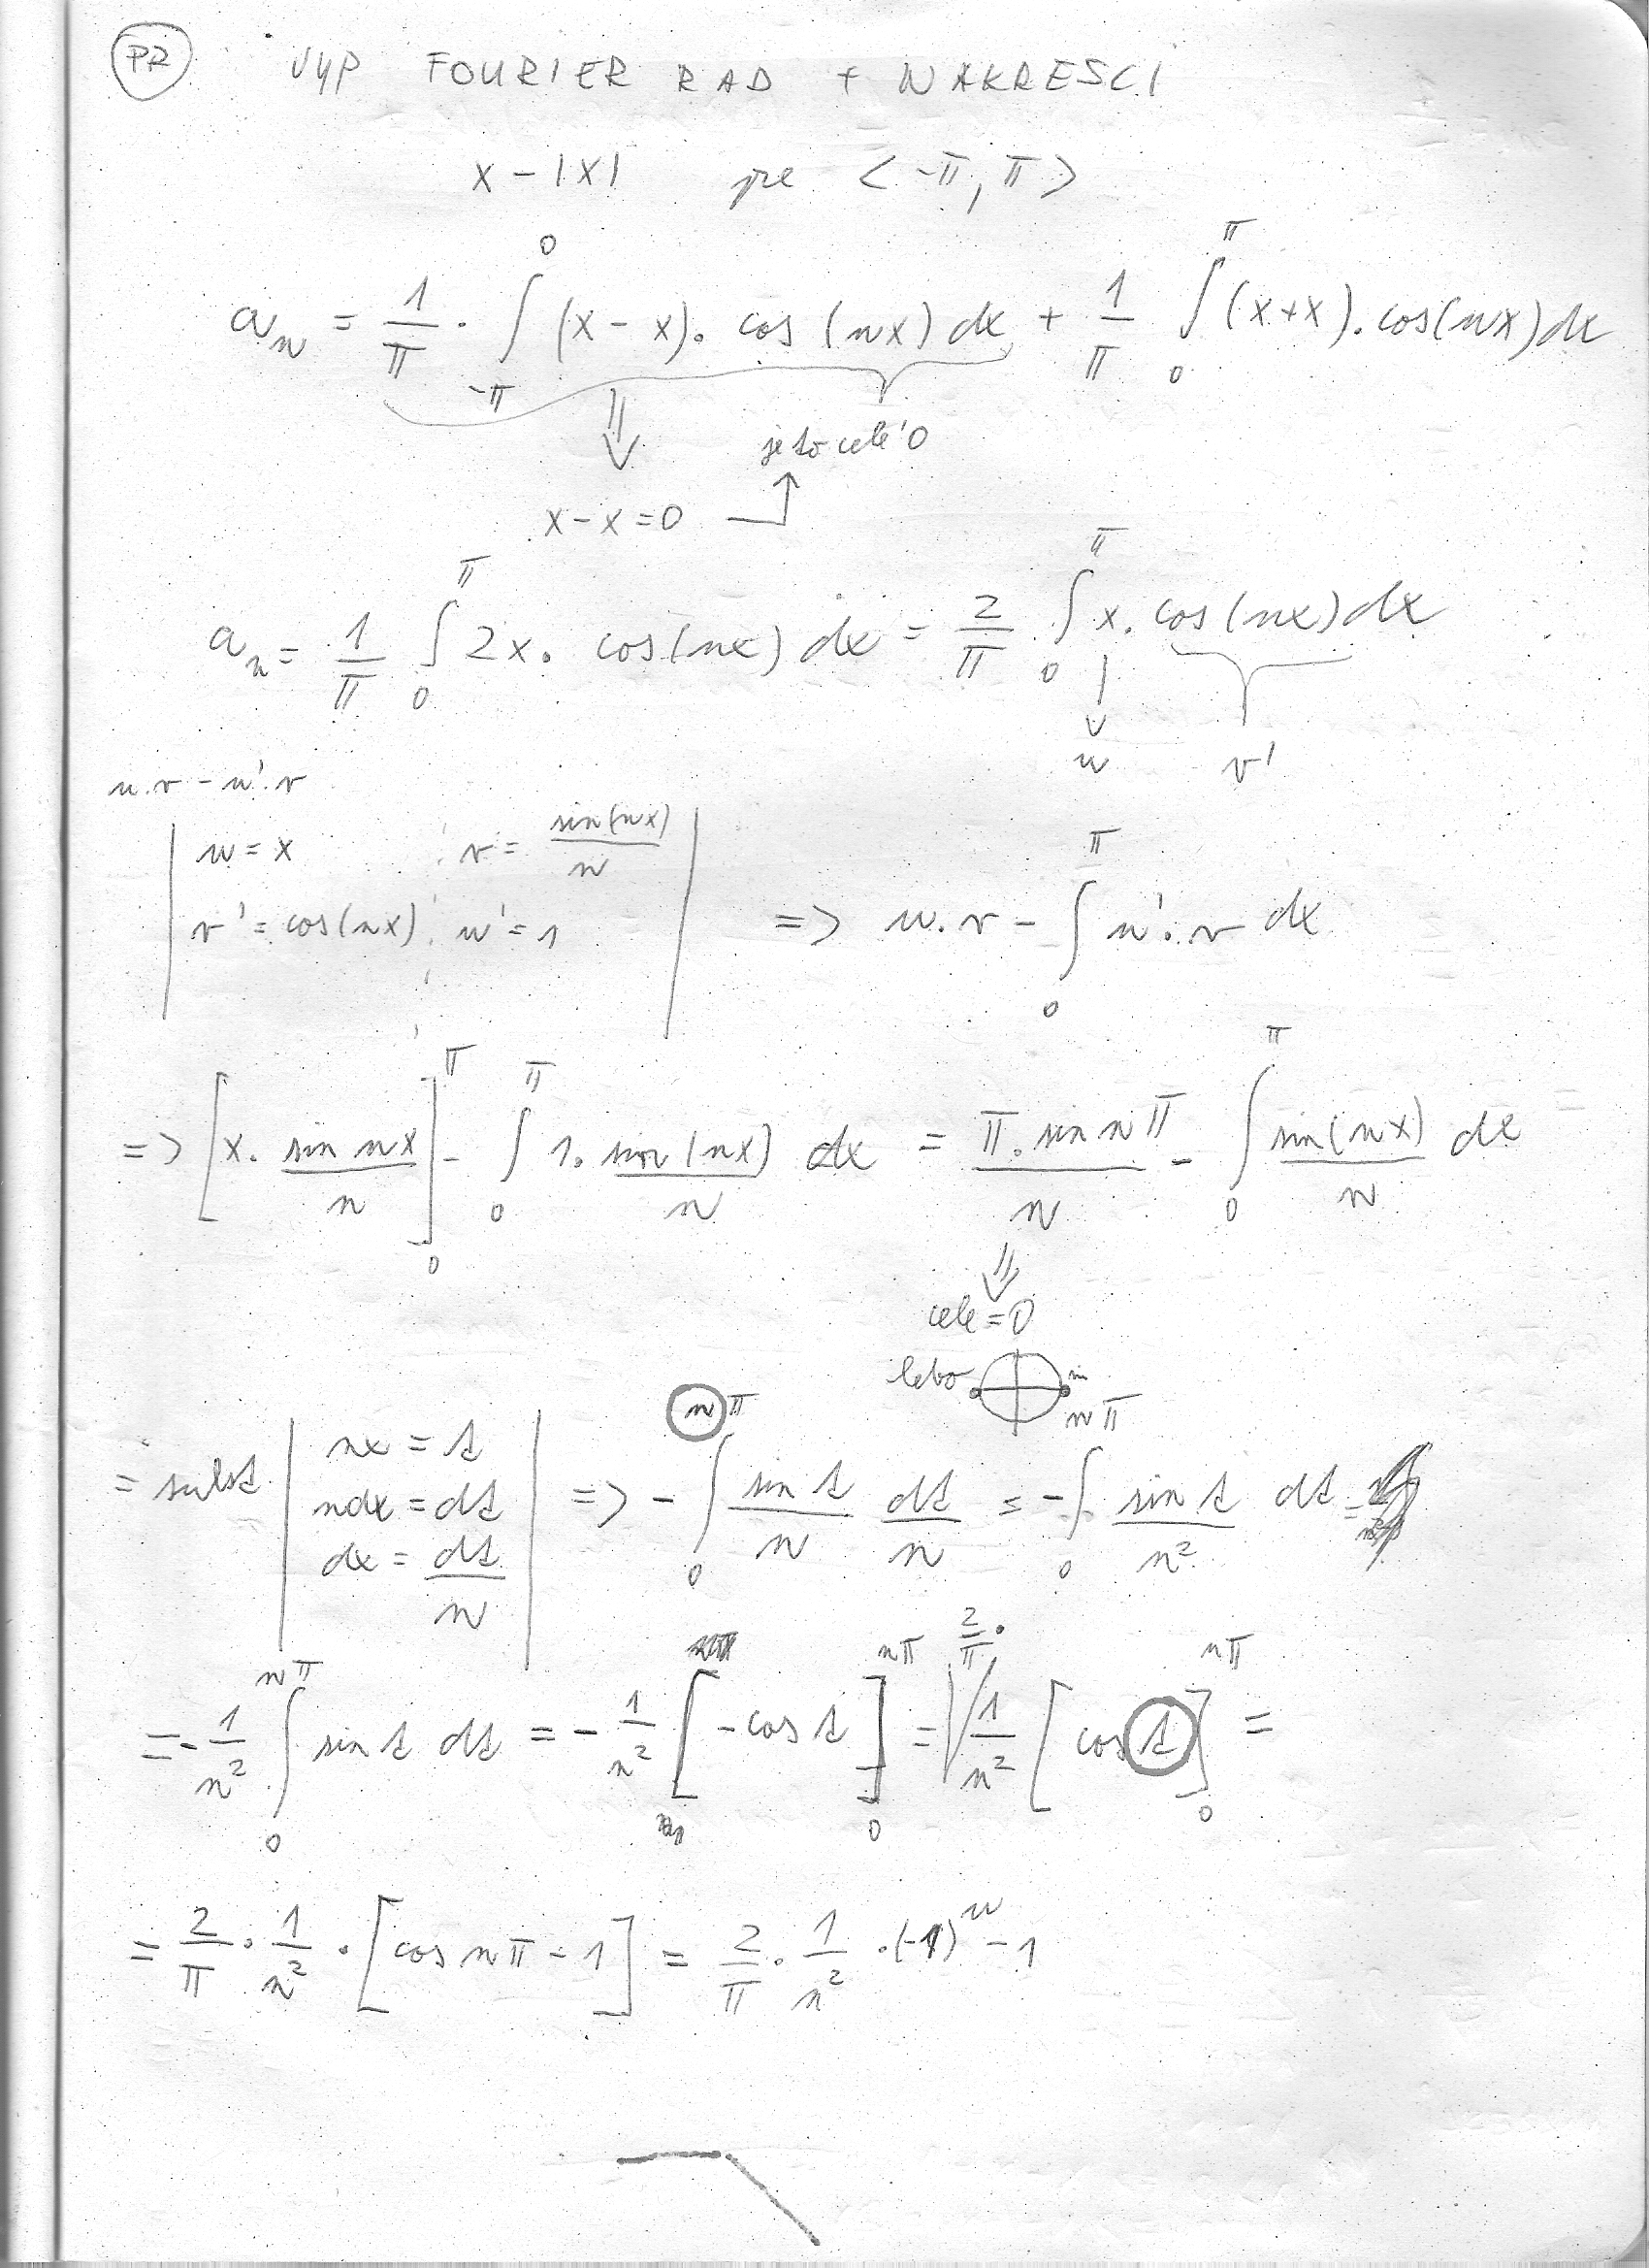 PR VYP FOURIER RAD + NAKRESCI
x - |x| pre <-π, π>
a_n = 1/π · ∫_{-π}^{0} (x - x) · cos (nx) dx + 1/π ∫_{0}^{π} (x+x) · cos(nx) dx
je to celé 0
x - x = 0
a_n = 1/π ∫_{0}^{π} 2x · cos(nx) dx = 2/π ∫_{0}^{π} x · cos(nx) dx
u v'
u·v - u'·v
u = x v = sin(nx)/n
v' = cos(nx) u' = 1 => u·v - ∫_{0}^{π} u'·v dx
=> [x · sin nx/n]_{0}^{π} - ∫_{0}^{π} 1 · sin(nx)/n dx = π · sin nπ/n - ∫_{0}^{π} sin(nx)/n dx
cele = 0
lebo nπ
= subst | nx = t
ndx = dt
dx = dt/n | => - ∫_{0}^{nπ} sin t/n dt/n = - ∫_{0} sin t/n² dt
= - 1/n² ∫_{0}^{nπ} sin t dt = - 1/n² [-cos t]_{0}^{nπ} = 2/π · 1/n² [cos t]_{0}^{nπ} =
= 2/π · 1/n² · [cos nπ - 1] = 2/π · 1/n² · (-1)^n - 1